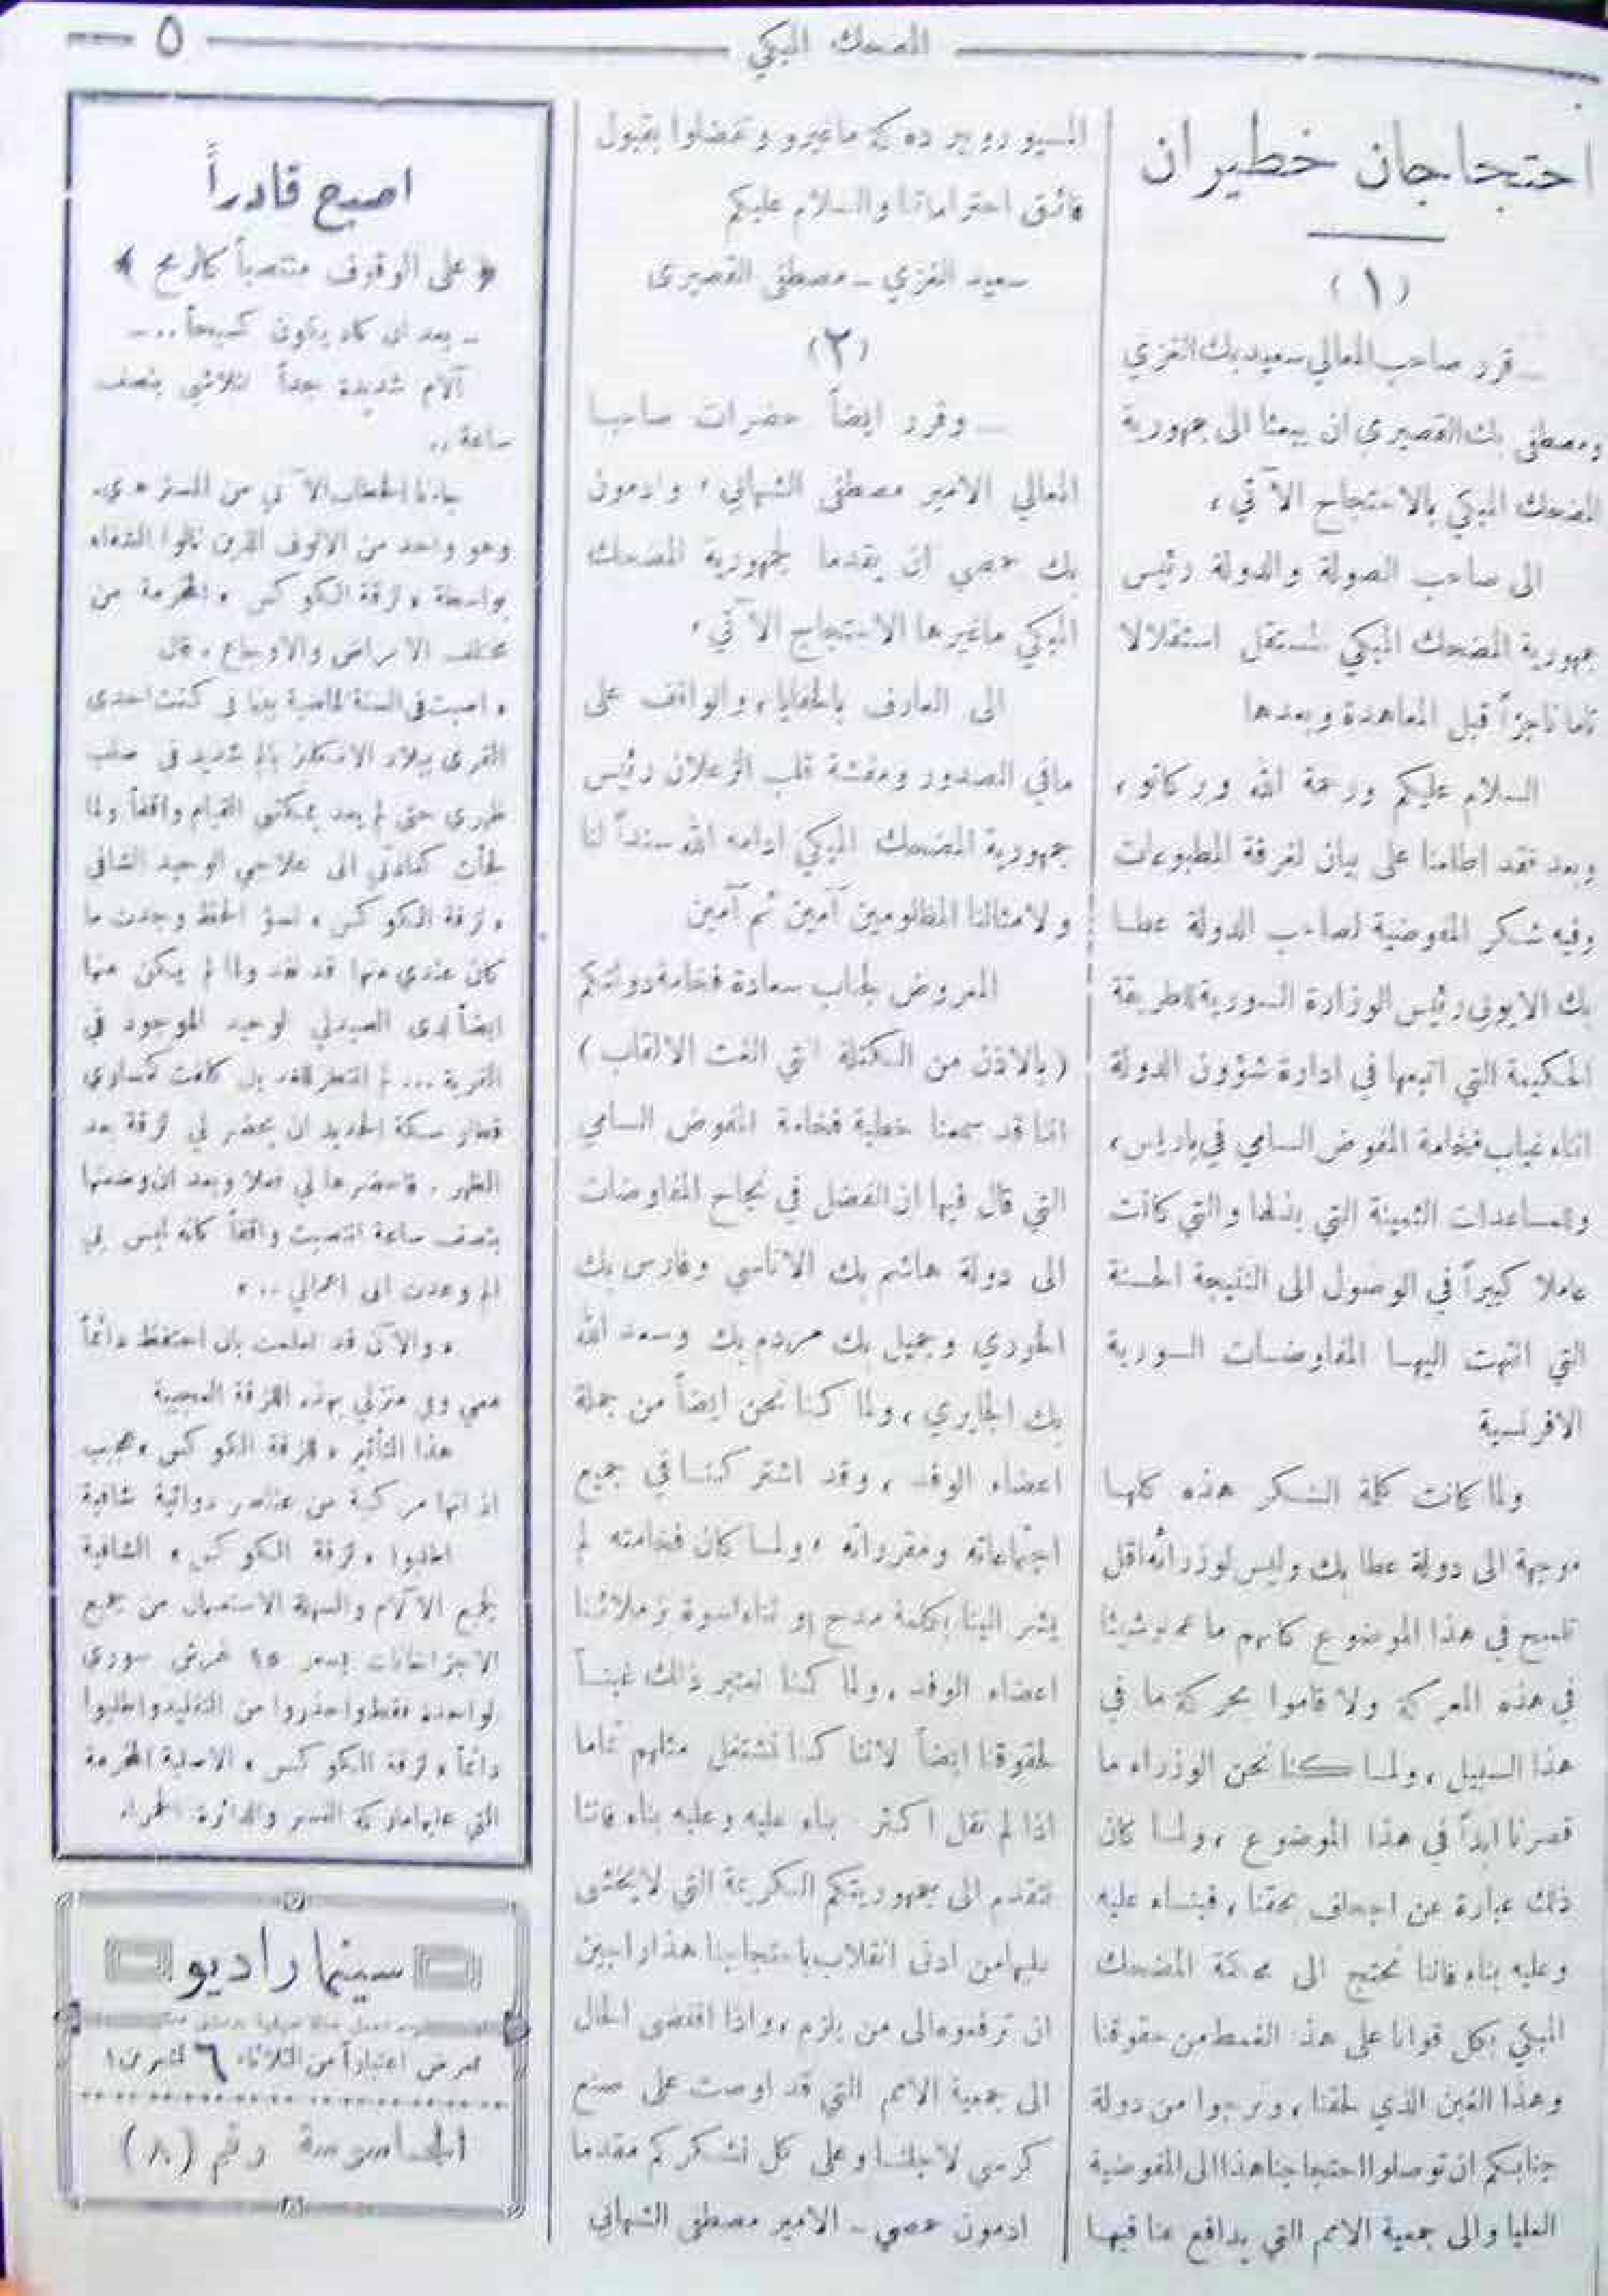 المضحك المبكي
٥
احتجاجان خطيران
(١)
ــ قرر صاحب المعالي سعيد بك الغزي
ومصطفى بك القصيري ان يبعثا الى جمهورية
المضحك المبكي بالاحتجاج الآتي :
الى صاحب الصولة والدولة رئيس
جمهورية المضحك المبكي المستقل استقلالا
تاما ناجزاً قبل المعاهدة وبعدها
السلام عليكم ورحمة الله وبركاتو ،
وبعد فقد اطلعنا على بيان لغرفة المطبوعات
وفيه شكر المفوضية لصاحب الدولة عطا
بك الايوبي رئيس الوزارة السورية للطريقة
الحكيمة التي اتبعها في ادارة شؤون الدولة
اثناء غياب فخامة المفوض السامي في باريس ،
والمساعدات الثمينة التي بذلها والتي كانت
عاملا كبيراً في الوصول الى النتيجة الحسنة
التي انتهت اليها المفاوضات السورية
الافرنسية
ولما كانت كلمة الشكر هذه كلها
موجهة الى دولة عطا بك وليس لوزرائه اقل
تلميح في هذا الموضوع كأنهم ما عملوا شيئا
في هذه المعركة ولا قاموا بحركة ما في
هذا السبيل ، ولما كنا نحن الوزراء ما
قصرنا ابداً في هذا الموضوع ، ولما كان
ذلك عبارة عن اجحاف بحقنا ، فبناء عليه
وعليه بناء فاننا نحتج الى محكمة المضحك
المبكي بكل قوانا على هذا الغمط من حقوقنا
وهذا الغبن الذي لحقنا ، ونرجوا من دولة
جنابكم ان توصلوا احتجاجنا هذا الى المفوضية
العليا والى جمعية الامم التي يدافع عنا فيها
المسيو روبير ده كه ماغيرو وتفضلوا بقبول
فائق احتراماتنا والسلام عليكم
سعيد الغزي ــ مصطفى القصيري
(٢)
ــ وقرر ايضاً حضرات صاحبا
المعالي الامير مصطفى الشهابي ، وادمون
بك حمصي ان يقدما لجمهورية المضحك
المبكي ماغيرها الاحتجاج الآتي ،
الى العارف بالخفايا ، والواقف على
مافي الصدور ومفشة قلب الزعلان رئيس
جمهورية المضحك المبكي ادامه الله سنداً لنا
ولامثالنا المظلومين آمين ثم آمين
المعروض لجناب سعادة فخامة دولتكم
(بالاذن من الكتلة التي الغت الالقاب)
اننا قد سمعنا خطبة فخامة المفوض السامي
التي قال فيها ان الفضل في نجاح المفاوضات
الى دولة هاشم بك الاتاسي وفارس بك
الخوري وجميل بك مردم بك وسعد الله
بك الجابري ، ولما كنا نحن ايضاً من جملة
اعضاء الوفد ، وقد اشتركنا في جميع
اجتماعاته ومقرراته ، ولما كان فخامته لم
يشر الينا بكلمة مدح او ثناء اسوة بزملائنا
اعضاء الوفد ، ولما كنا نعتبر ذلك غبناً
لحقوقنا ايضاً لاننا كنا نشتغل مثلهم تماما
اذا لم نقل اكثر بناء عليه وعليه بناء فاننا
نتقدم الى جمهوريتكم الكريمة التي لا يخشى
عليها من ادنى انقلاب باحتجاجنا هذا راجين
ان ترفعوه الى من يلزم ، واذا اقتضى الحال
الى جمعية الامم التي قد اوصت على صنع
كرسي لاجلنا وعلى كل نشكركم مقدما
ادمون حمصي ــ الامير مصطفى الشهابي
اصبح قادراً
﴿ على الوقوف منتصباً كالرمح ﴾
ــ بعد ان كاد يكون كسيحاً .. ــ
آلام شديدة جداً تتلاشى بنصف
ساعة ..
جاءنا الخطاب الآتي من المستر ه . ي .
وهو واحد من الالوف الذين نالوا الشفاء
بواسطة « لزقة الكوكس » المخرمة من
مختلف الامراض والاوجاع . قال
« اصبت في السنة الماضية بينما كنت احدى
القرى ببلاد الانكليز بالم شديد في صلب
ظهري حتى لم يعد يمكنني القيام واقفاً ولما
لجأت كعادتي الى علاجي الوحيد الشافي
« لزقة الكوكس » لسؤ الحظ وجدت ما
كان عندي منها قد نفد ولما لم يكن منها
ايضاً لدى الصيدلي الوحيد الموجود في
القرية ... لم انتظر للغد بل كلفت
قطار سكة الحديد ان يحضر لي لزقة بعد
الظهر . فاحضرها لي فعلا وبعد ان وضعتها
بنصف ساعة انتصبت واقفاً كأنه ليس بي
الم وعدت الى اعمالي .. »
« والآن قد تعلمت بان احتفظ دائماً
معي وفي منزلي بهذه اللزقة العجيبة
هذا التأثير « للزقة الكوكس » عجيب
اذ انها مركبة من عناصر دوائية شافية
اطلبوا « لزقة الكوكس » الشافية
لجميع الآلام والسهلة الاستعمال من جميع
الاجزاخانات بسعر ١٥ غرش سوري
لواحدة فقط واحذروا من التقليد واطلبوا
دائماً « لزقة الكوكس » الاصلية المخرمة
التي عليها ماركة النسر والدائرة الحمراء
سينما راديو
تعرض اعتباراً من الثلاثاء ٦ تشرين ١
الجاسوسة رقم (٨)